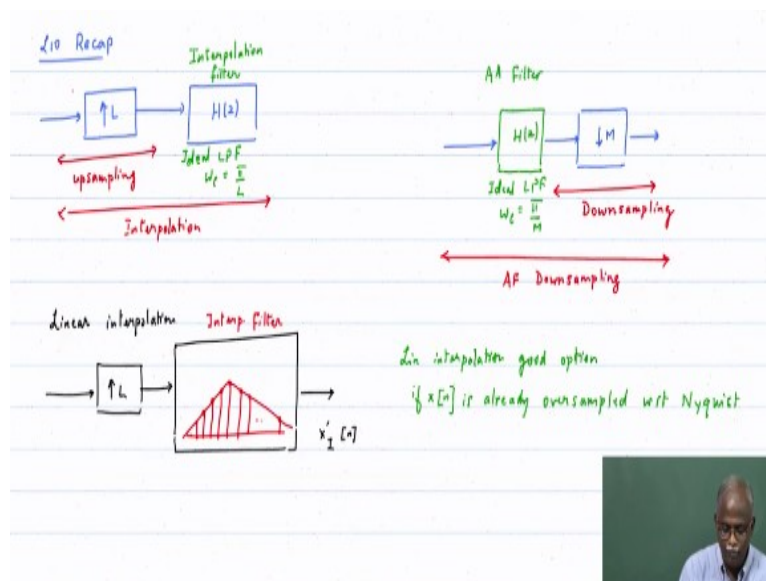 L10 Recap
Interpolation
filter
↑L
H(z)
Ideal LPF
ωc = π/L
upsampling
Interpolation
AA Filter
H(z)
↓M
Ideal LPF
ωc = π/M
Downsampling
AF Downsampling
Linear interpolation
Interp filter
↑L
x'I [n]
Lin interpolation good option
if x[n] is already oversampled wrt Nyquist